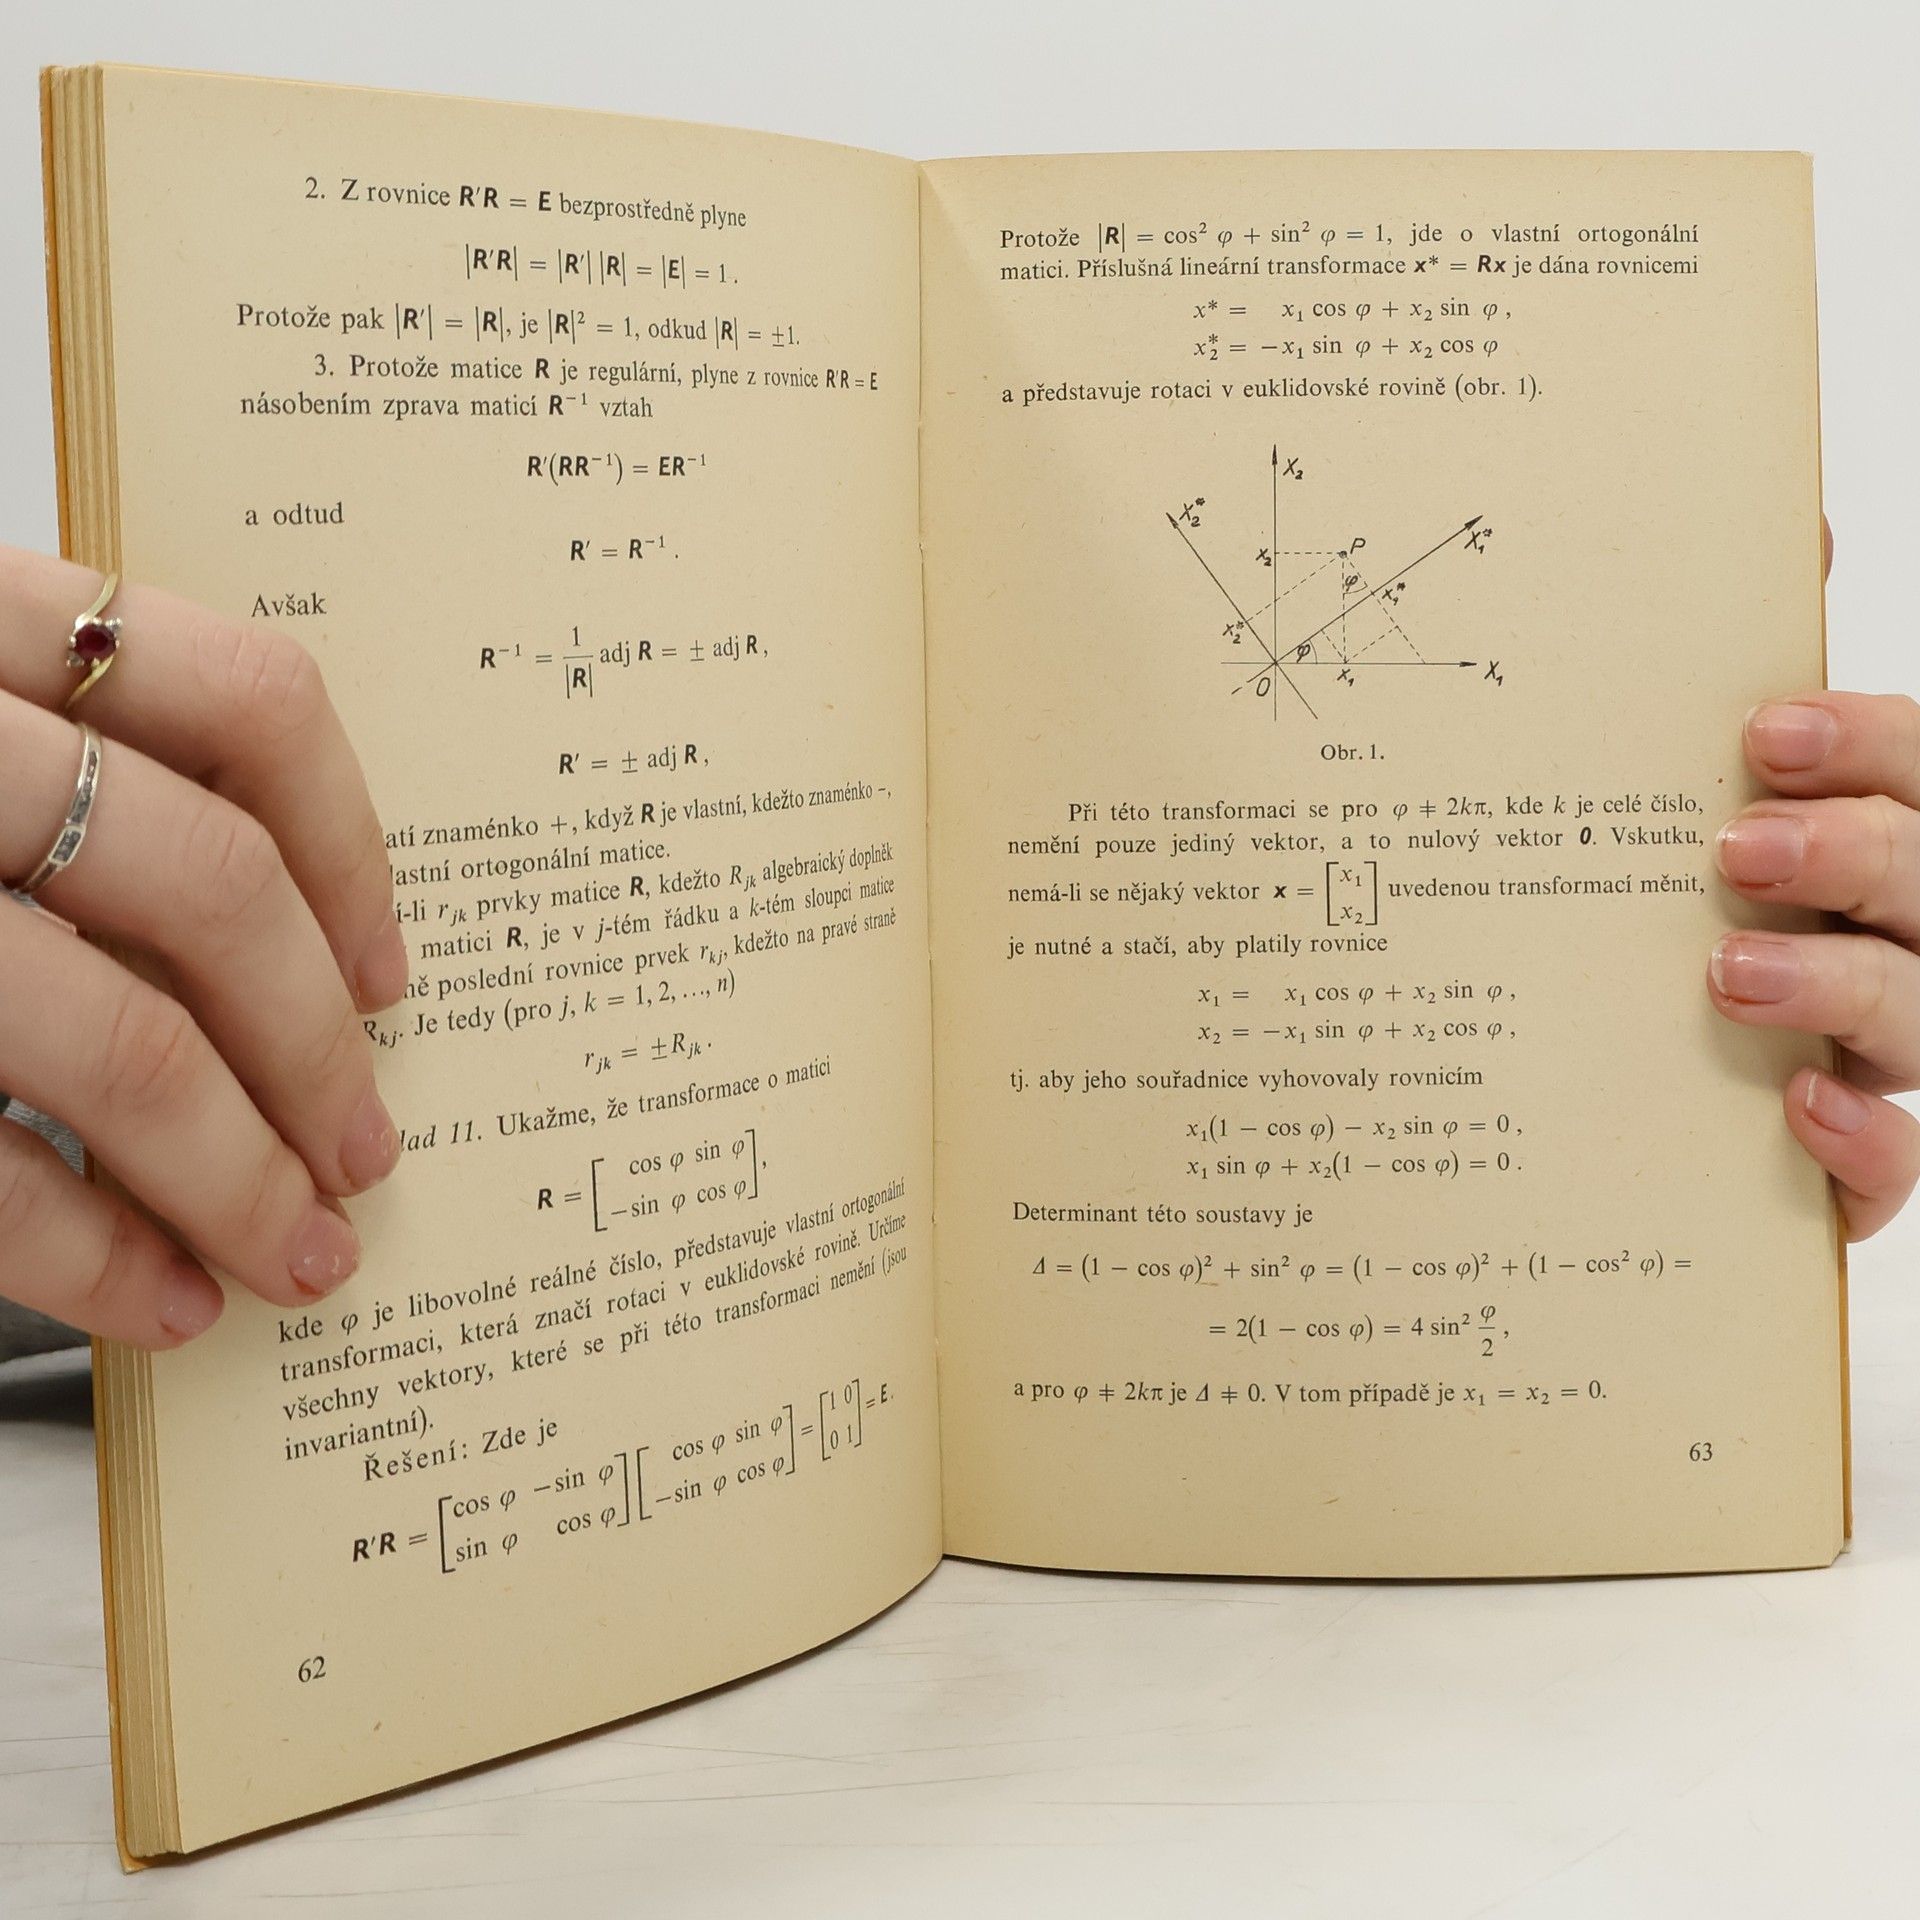 2. Z rovnice R′R = E bezprostředně plyne
|R′R| = |R′| |R| = |E| = 1.
Protože pak |R′| = |R|, je |R|² = 1, odkud |R| = ±1.
3. Protože matice R je regulární, plyne z rovnice R′R = E
násobením zprava maticí R⁻¹ vztah
R′(RR⁻¹) = ER⁻¹
a odtud
R′ = R⁻¹ .
Avšak
R⁻¹ = 1/|R| adj R = ± adj R,
R′ = ± adj R,
znaménko +, když R je vlastní, kdežto znaménko –,
ortogonální matice.
r_jk prvky matice R, kdežto R_jk algebraický doplněk
matici R, je v j-tém řádku a k-tém sloupci matice
poslední rovnice prvek r_kj, kdežto na pravé straně
R_kj. Je tedy (pro j, k = 1, 2, ..., n)
r_jk = ±R_jk .
11. Ukažme, že transformace o matici
R = [cos φ sin φ
−sin φ cos φ],
kde φ je libovolné reálné číslo, představuje vlastní ortogonální
transformaci, která značí rotaci v euklidovské rovině. Určíme
všechny vektory, které se při této transformaci nemění (jsou
invariantní).
Řešení: Zde je
R′R = [cos φ −sin φ] [cos φ sin φ] = [1 0] = E.
[sin φ cos φ] [−sin φ cos φ] [0 1]
62
Protože |R| = cos² φ + sin² φ = 1, jde o vlastní ortogonální
matici. Příslušná lineární transformace x* = Rx je dána rovnicemi
x* = x₁ cos φ + x₂ sin φ ,
x₂* = −x₁ sin φ + x₂ cos φ
a představuje rotaci v euklidovské rovině (obr. 1).
X₂
X₂*
X₁*
x₂
P
φ
x₁*
x₂*
φ
O
x₁
X₁
Obr. 1.
Při této transformaci se pro φ ≠ 2kπ, kde k je celé číslo,
nemění pouze jediný vektor, a to nulový vektor 0. Vskutku,
nemá-li se nějaký vektor x = [x₁
x₂] uvedenou transformací měnit,
je nutné a stačí, aby platily rovnice
x₁ = x₁ cos φ + x₂ sin φ ,
x₂ = −x₁ sin φ + x₂ cos φ ,
tj. aby jeho souřadnice vyhovovaly rovnicím
x₁(1 − cos φ) − x₂ sin φ = 0 ,
x₁ sin φ + x₂(1 − cos φ) = 0 .
Determinant této soustavy je
Δ = (1 − cos φ)² + sin² φ = (1 − cos φ)² + (1 − cos² φ) =
= 2(1 − cos φ) = 4 sin² φ/2 ,
a pro φ ≠ 2kπ je Δ ≠ 0. V tom případě je x₁ = x₂ = 0.
63